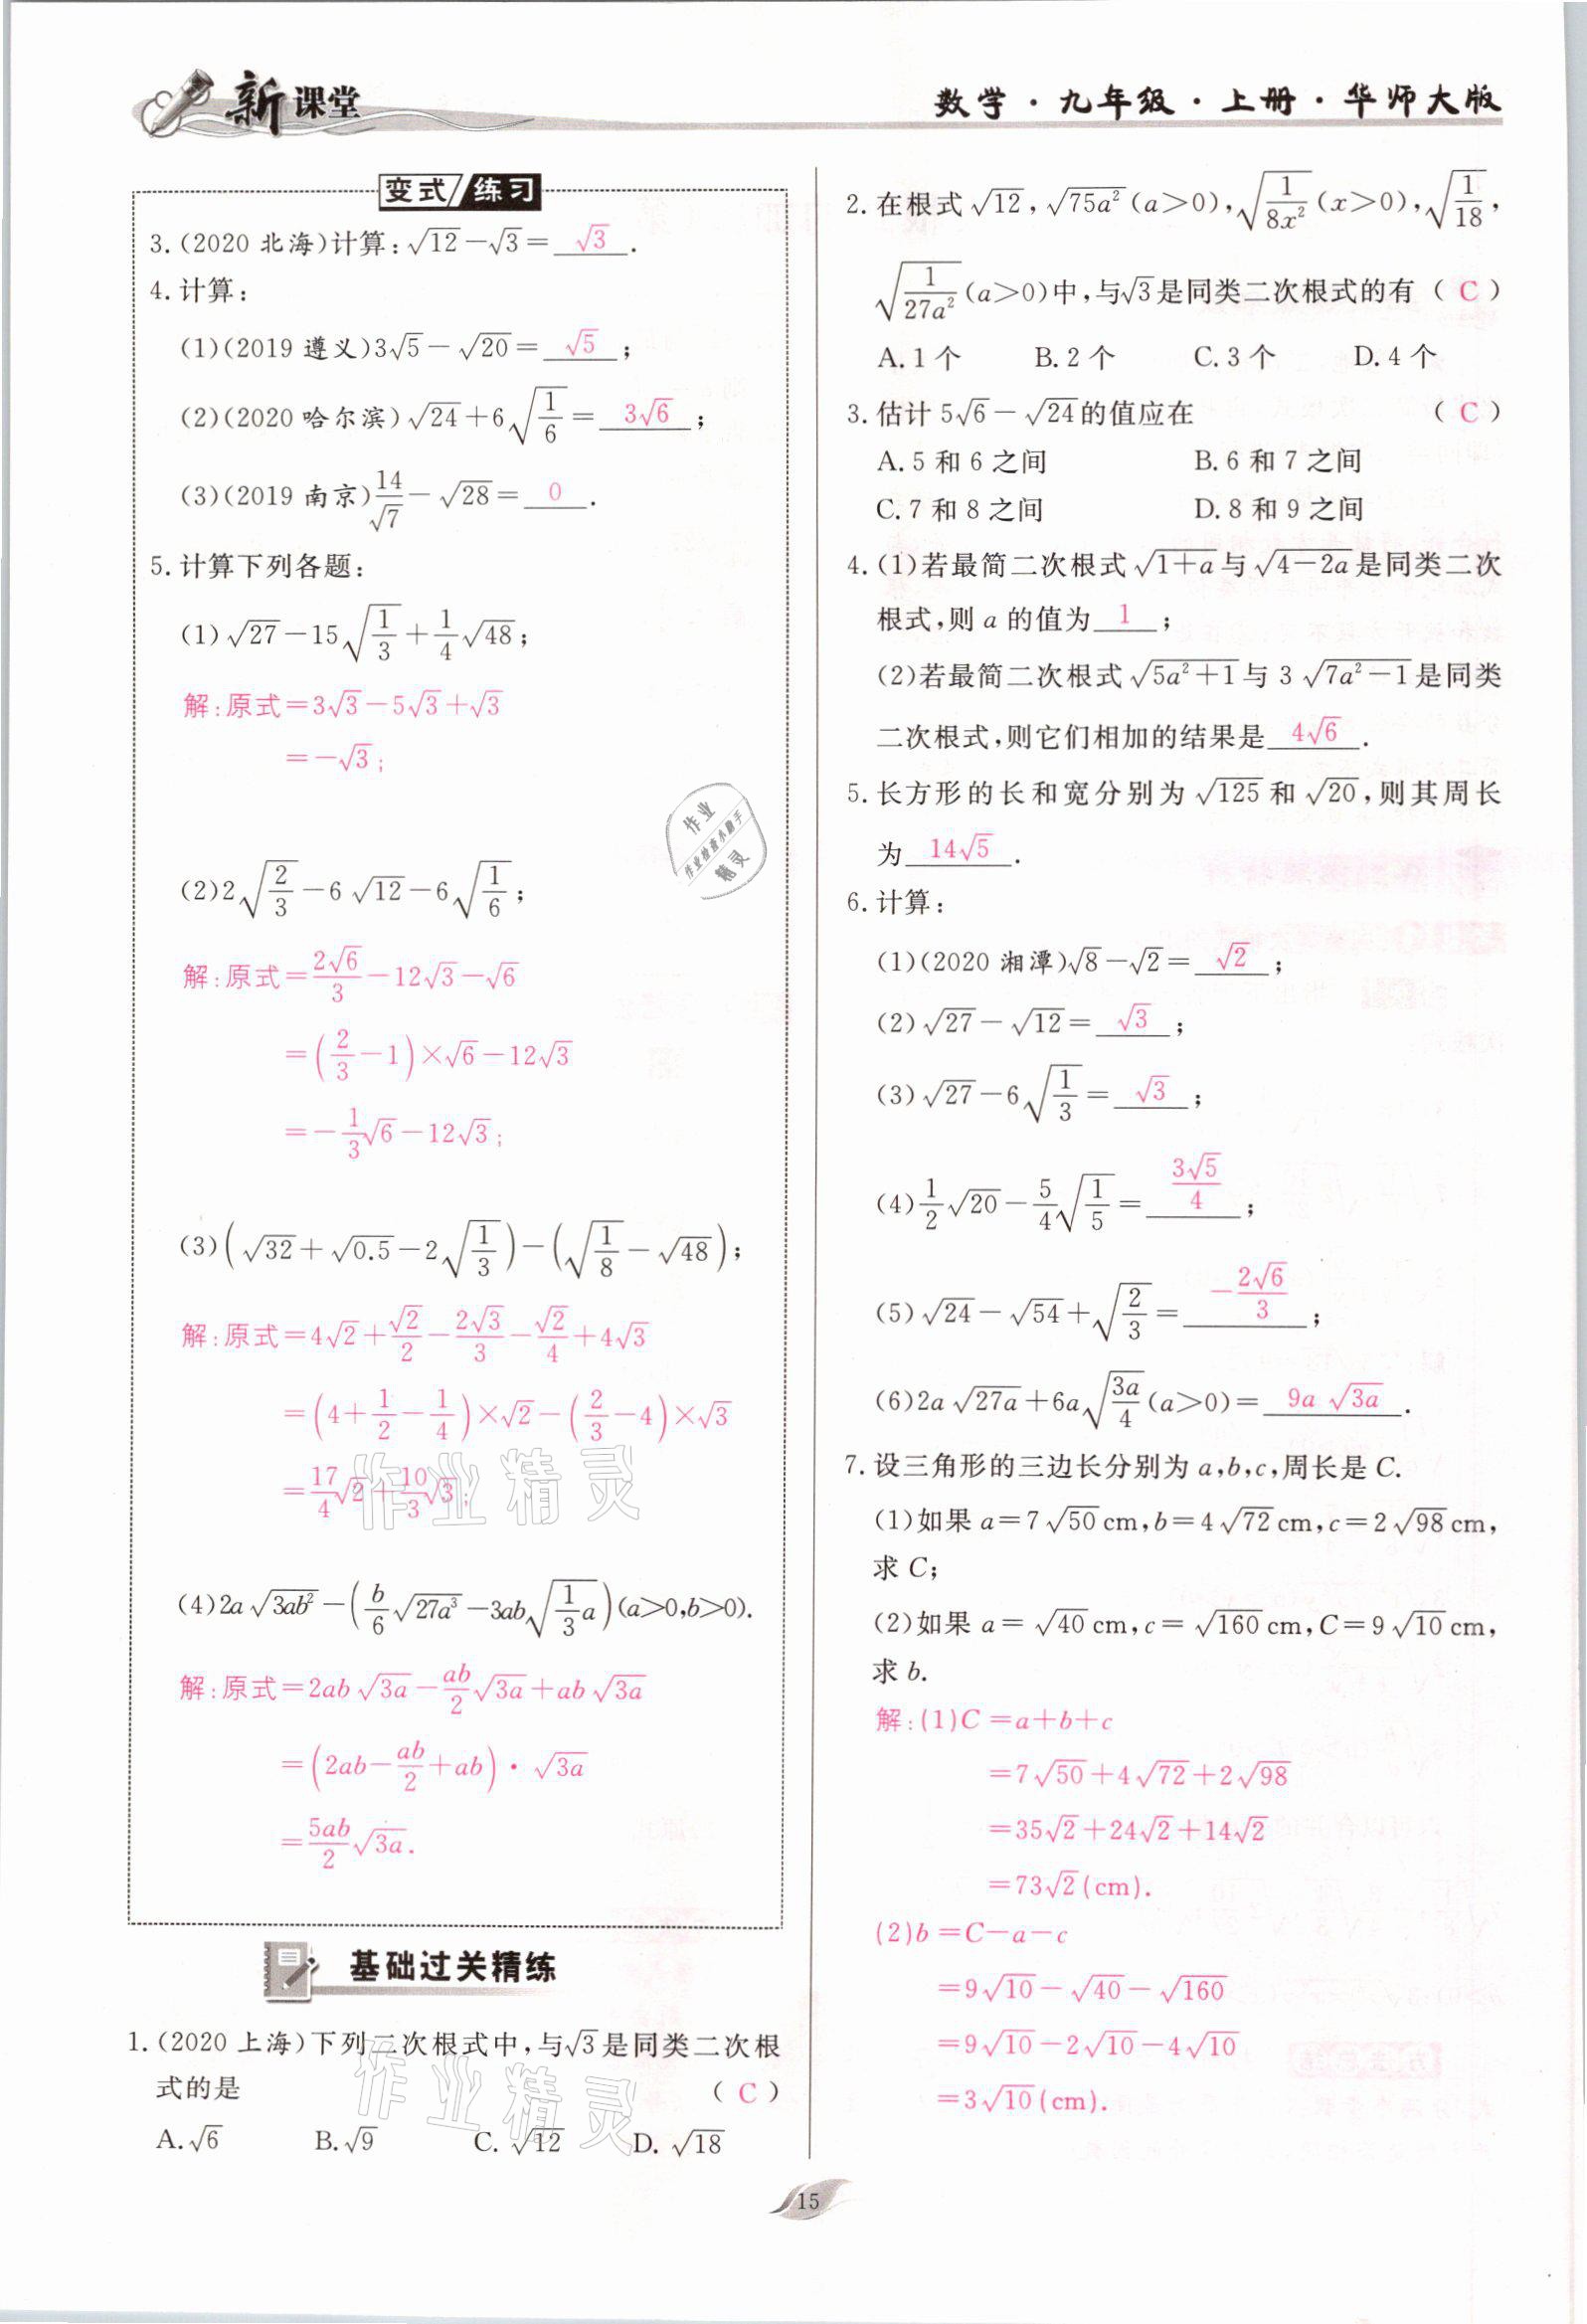 新课堂
数学·九年级·上册·华师大版
变式/练习
3.(2020 北海)计算:√12-√3=√3.
4.计算:
(1)(2019 遵义)3√5-√20=√5;
(2)(2020 哈尔滨)√24+6√(1/6)=3√6;
(3)(2019 南京)14/√7-√28=0.
5.计算下列各题:
(1)√27-15√(1/3)+1/4√48;
解:原式=3√3-5√3+√3
=-√3;
(2)2√(2/3)-6√12-6√(1/6);
解:原式=2√6/3-12√3-√6
=(2/3-1)×√6-12√3
=-1/3√6-12√3;
(3)(√32+√0.5-2√(1/3))-(√(1/8)-√48);
解:原式=4√2+√2/2-2√3/3-√2/4+4√3
=(4+1/2-1/4)×√2-(2/3-4)×√3
=17/4√2+10/3√3;
(4)2a√(3ab²)-(b/6√(27a³)-3ab√(1/3 a))(a>0,b>0).
解:原式=2ab√(3a)-ab/2√(3a)+ab√(3a)
=(2ab-ab/2+ab)·√(3a)
=5ab/2√(3a).
基础过关精练
1.(2020 上海)下列二次根式中,与√3是同类二次根
式的是 (C)
A.√6 B.√9 C.√12 D.√18
2.在根式√12,√(75a²)(a>0),√(1/(8x²))(x>0),√(1/18),
√(1/(27a²))(a>0)中,与√3是同类二次根式的有(C)
A.1个 B.2个 C.3个 D.4个
3.估计5√6-√24的值应在 (C)
A.5和6之间 B.6和7之间
C.7和8之间 D.8和9之间
4.(1)若最简二次根式√(1+a)与√(4-2a)是同类二次
根式,则a的值为1;
(2)若最简二次根式√(5a²+1)与3√(7a²-1)是同类
二次根式,则它们相加的结果是4√6.
5.长方形的长和宽分别为√125和√20,则其周长
为14√5.
6.计算:
(1)(2020 湘潭)√8-√2=√2;
(2)√27-√12=√3;
(3)√27-6√(1/3)=√3;
(4)1/2√20-5/4√(1/5)=3√5/4;
(5)√24-√54+√(2/3)=-2√6/3;
(6)2a√(27a)+6a√(3a/4)(a>0)=9a√(3a).
7.设三角形的三边长分别为a,b,c,周长是C.
(1)如果a=7√50cm,b=4√72cm,c=2√98cm,
求C;
(2)如果a=√40cm,c=√160cm,C=9√10cm,
求b.
解:(1)C=a+b+c
=7√50+4√72+2√98
=35√2+24√2+14√2
=73√2(cm).
(2)b=C-a-c
=9√10-√40-√160
=9√10-2√10-4√10
=3√10(cm).
作业
作业检查小助手
精灵
作业精灵
作业精灵
15